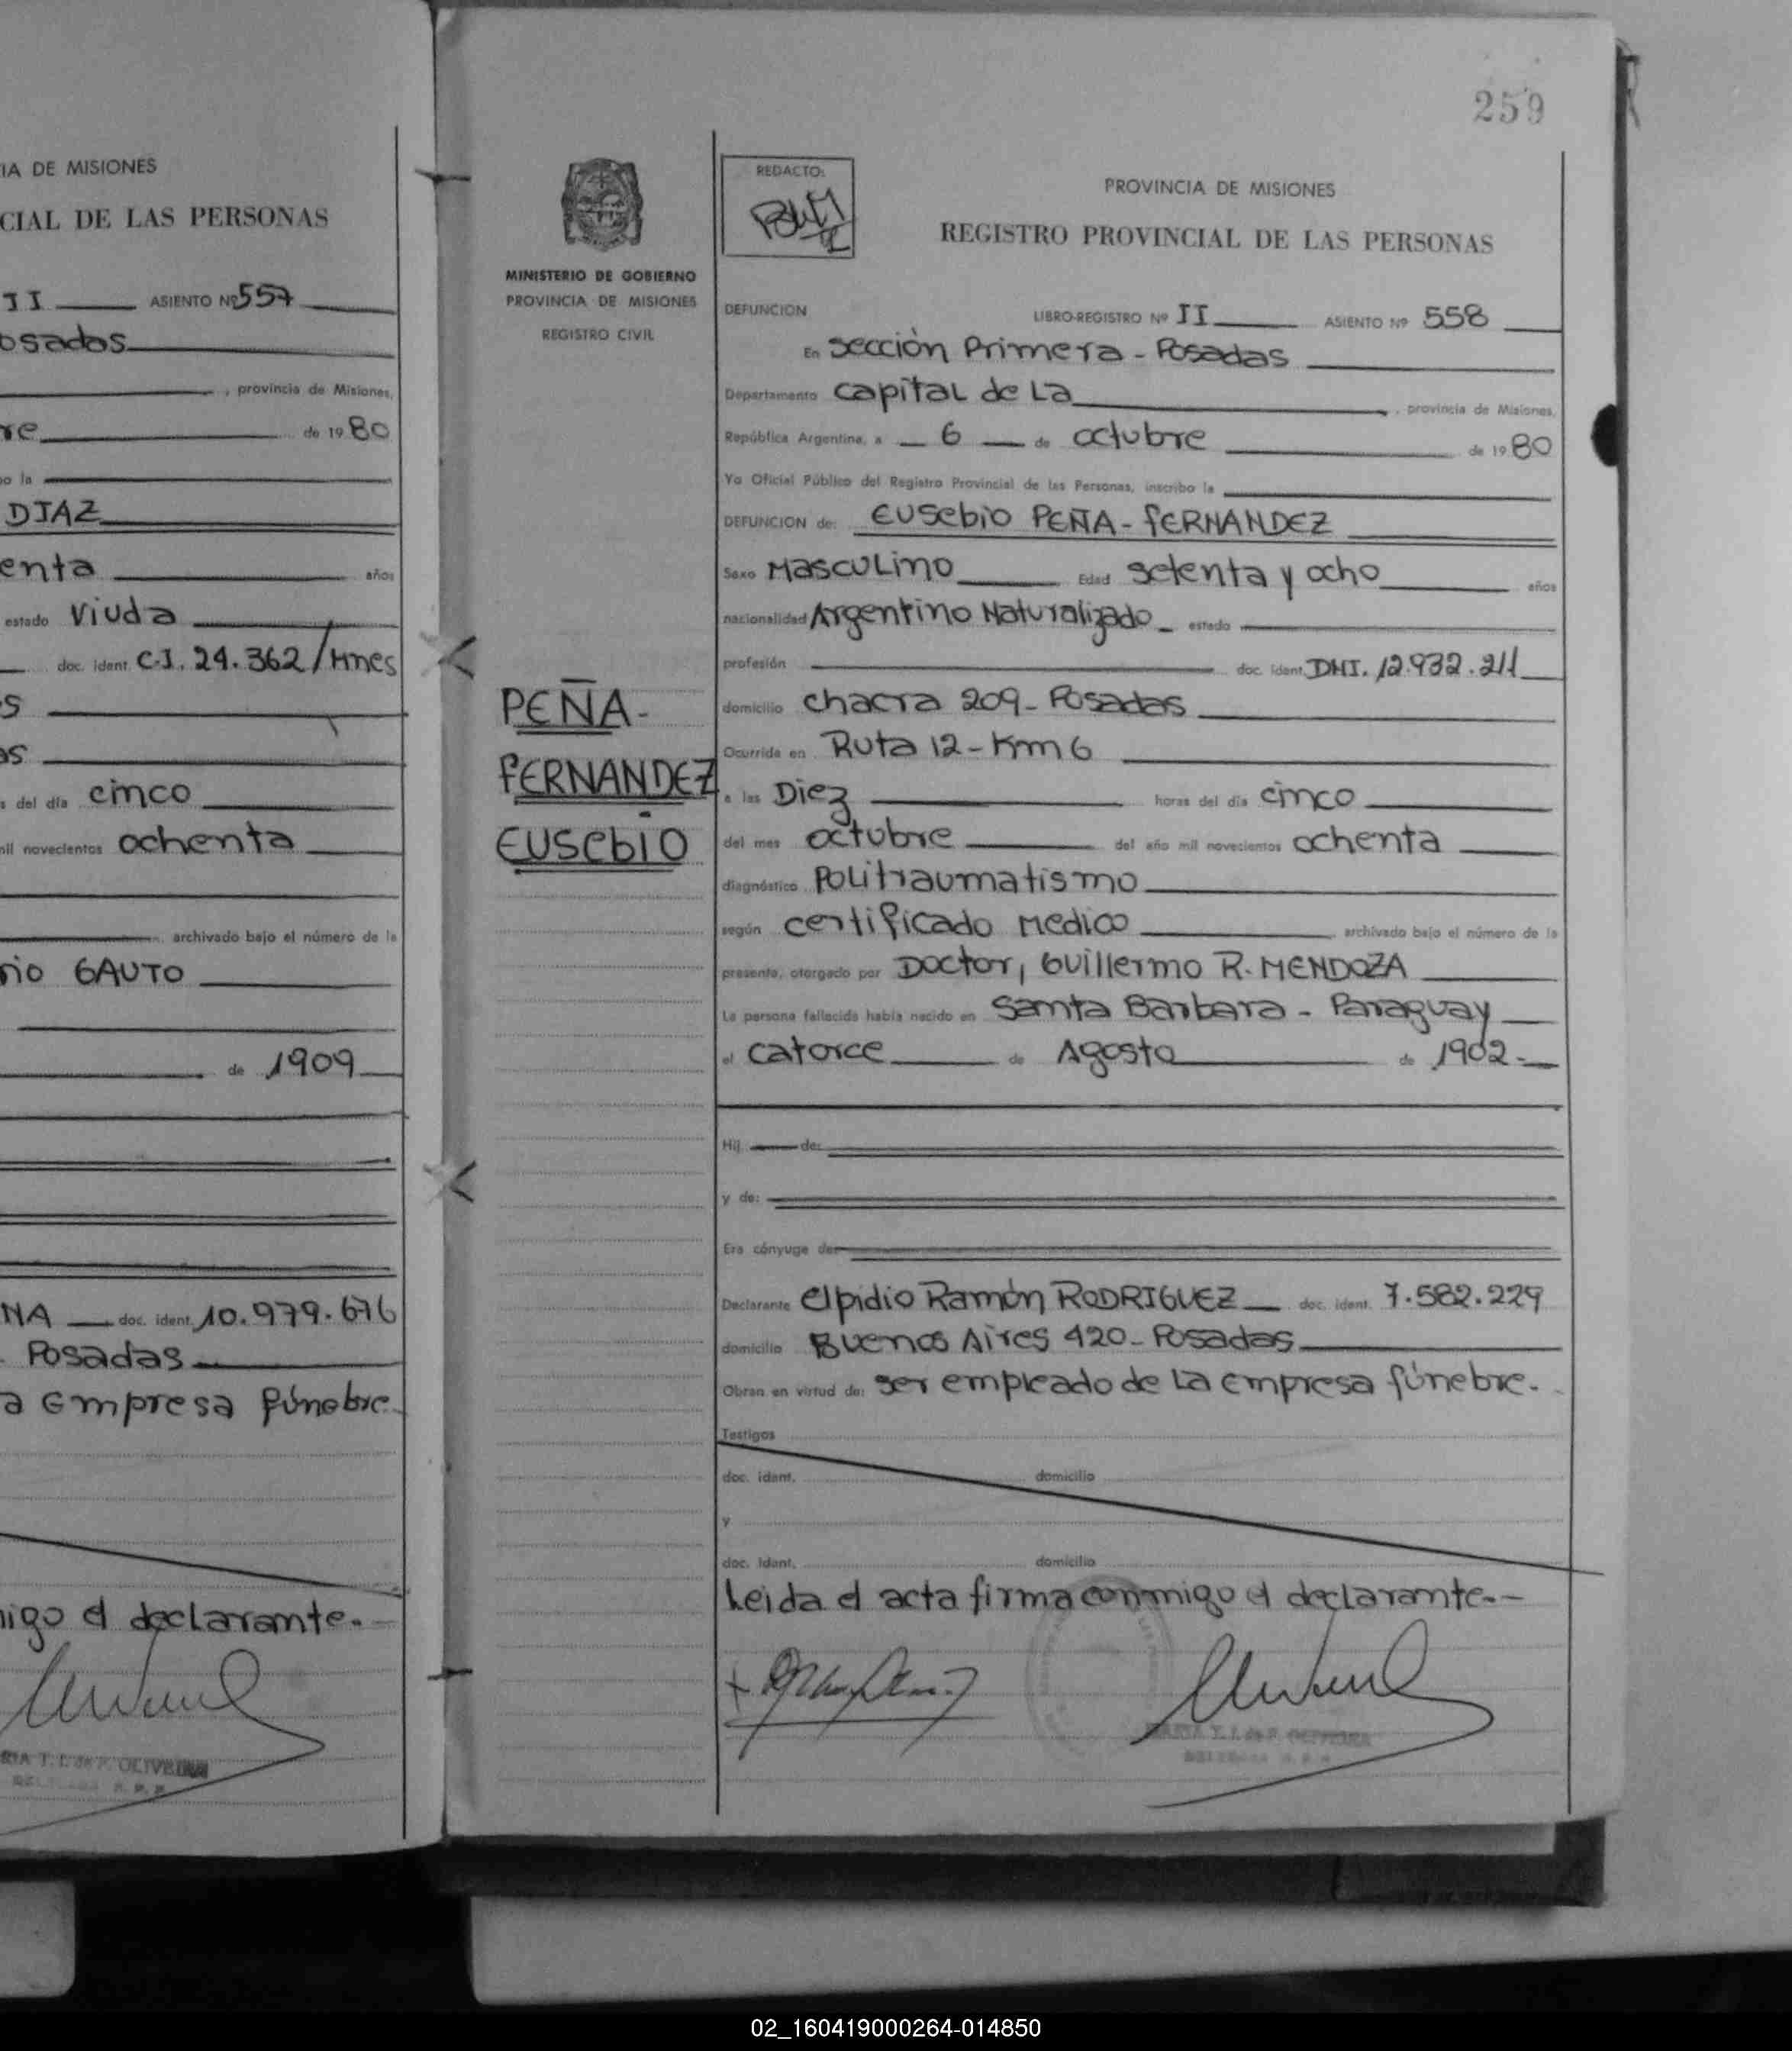 IA DE MISIONES
CIAL DE LAS PERSONAS
II ASIENTO Nº 557
osadas
, provincia de Misiones,
re de 1980
bo la
DIAZ
enta años
estado Viuda
doc. ident. C.I. 24.362/Mnes
s
as
s del día cinco
mil novecientos ochenta
archivado bajo el número de la
rio GAUTO
de 1909
NA doc. ident. 10.979.676
. Posadas
a Empresa fúnebre
migo el declarante.-
RIA T. I. de P. OLIVEIRA
259
MINISTERIO DE GOBIERNO
PROVINCIA DE MISIONES
REGISTRO CIVIL
PEÑA-
FERNANDEZ
EUSEBIO
REDACTO:
PROVINCIA DE MISIONES
REGISTRO PROVINCIAL DE LAS PERSONAS
DEFUNCION LIBRO-REGISTRO Nº II ASIENTO Nº 558
En Sección Primera - Posadas
Departamento Capital de La , provincia de Misiones,
República Argentina, a 6 de octubre de 1980
Yo Oficial Público del Registro Provincial de las Personas, inscribo la
DEFUNCION de: Eusebio PEÑA-FERNANDEZ
Sexo Masculino Edad setenta y ocho años
nacionalidad Argentino Naturalizado estado
profesión doc. ident. DNI. 12.932.211
domicilio chacra 209- Posadas
Ocurrida en Ruta 12-Km 6
a las Diez horas del día cinco
del mes octubre del año mil novecientos ochenta
diagnóstico Politraumatismo
según certificado Medico archivado bajo el número de la
presente, otorgado por Doctor, Guillermo R. MENDOZA
La persona fallecida había nacido en Santa Barbara - Paraguay
el catorce de Agosto de 1902.-
Hij de:
y de:
Era cónyuge de:
Declarante Elpidio Ramón RODRIGUEZ doc. ident. 7.582.229
domicilio Buenos Aires 420- Posadas
Obran en virtud de: ser empleado de La empresa fúnebre.
Testigos
doc. ident. domicilio
y
doc. ident. domicilio
Leida el acta firma conmigo el declarante.-
MARIA T. I. de P. OLIVEIRA
02_160419000264-014850